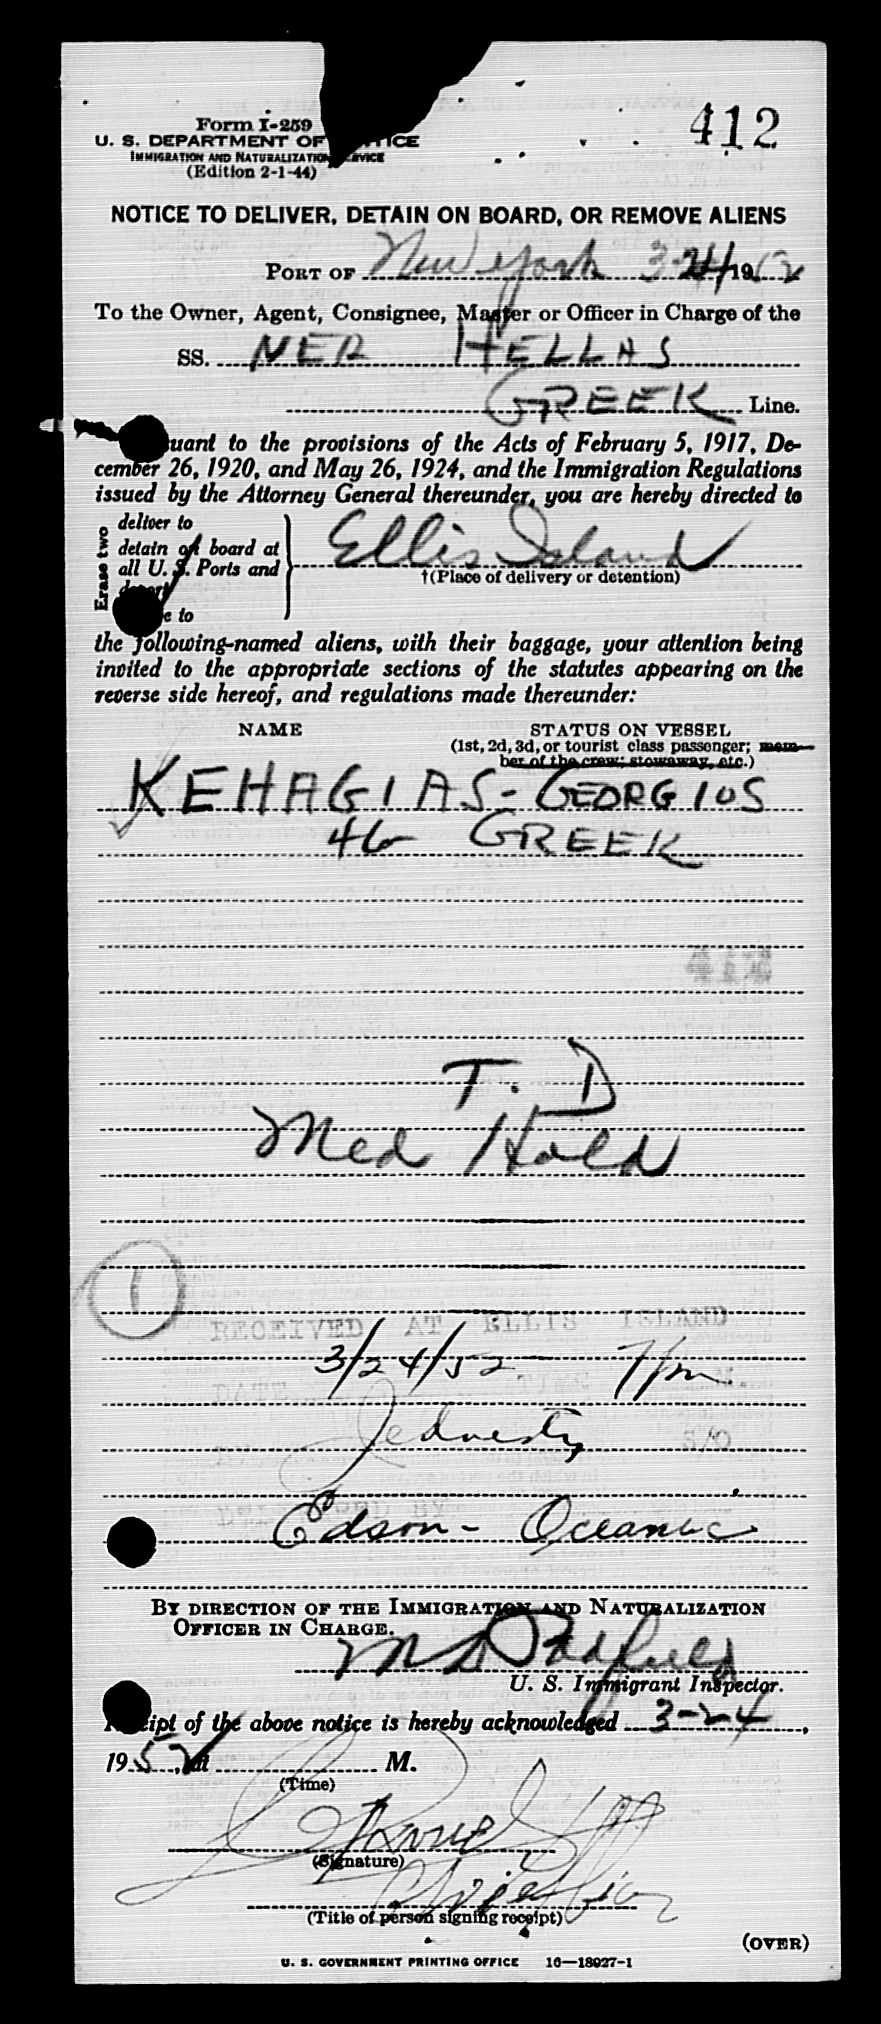 Form I-259
412
U. S. DEPARTMENT OF
IMMIGRATION AND NATURALIZATION SERVICE
(Edition 2-1-44)
NOTICE TO DELIVER, DETAIN ON BOARD, OR REMOVE ALIENS
PORT OF New York 3-24 1952
To the Owner, Agent, Consignee, Master or Officer in Charge of the
SS. NEA HELLAS
GREEK Line.
suant to the provisions of the Acts of February 5, 1917, De-
cember 26, 1920, and May 26, 1924, and the Immigration Regulations
issued by the Attorney General thereunder, you are hereby directed to
Erase two
deliver to
detain on board at
all U. S. Ports and
deport
e to
Ellis Island
†(Place of delivery or detention)
the following-named aliens, with their baggage, your attention being
invited to the appropriate sections of the statutes appearing on the
reverse side hereof, and regulations made thereunder:
NAME STATUS ON VESSEL
(1st, 2d, 3d, or tourist class passenger; mem-
ber of the crew; stowaway, etc.)
KEHAGIAS - GEORGIOS
46 GREEK
412
T. D
Med Hold
1
RECEIVED AT ELLIS ISLAND
DATE TIME M.
3/24/52 7 pm.
S/O
BY
Edson - Oceanic
BY DIRECTION OF THE IMMIGRATION AND NATURALIZATION
OFFICER IN CHARGE.
U. S. Immigrant Inspector.
Receipt of the above notice is hereby acknowledged 3-24,
1952, at M.
(Time)
(Signature)
(Title of person signing receipt)
(OVER)
U. S. GOVERNMENT PRINTING OFFICE 16—18027-1